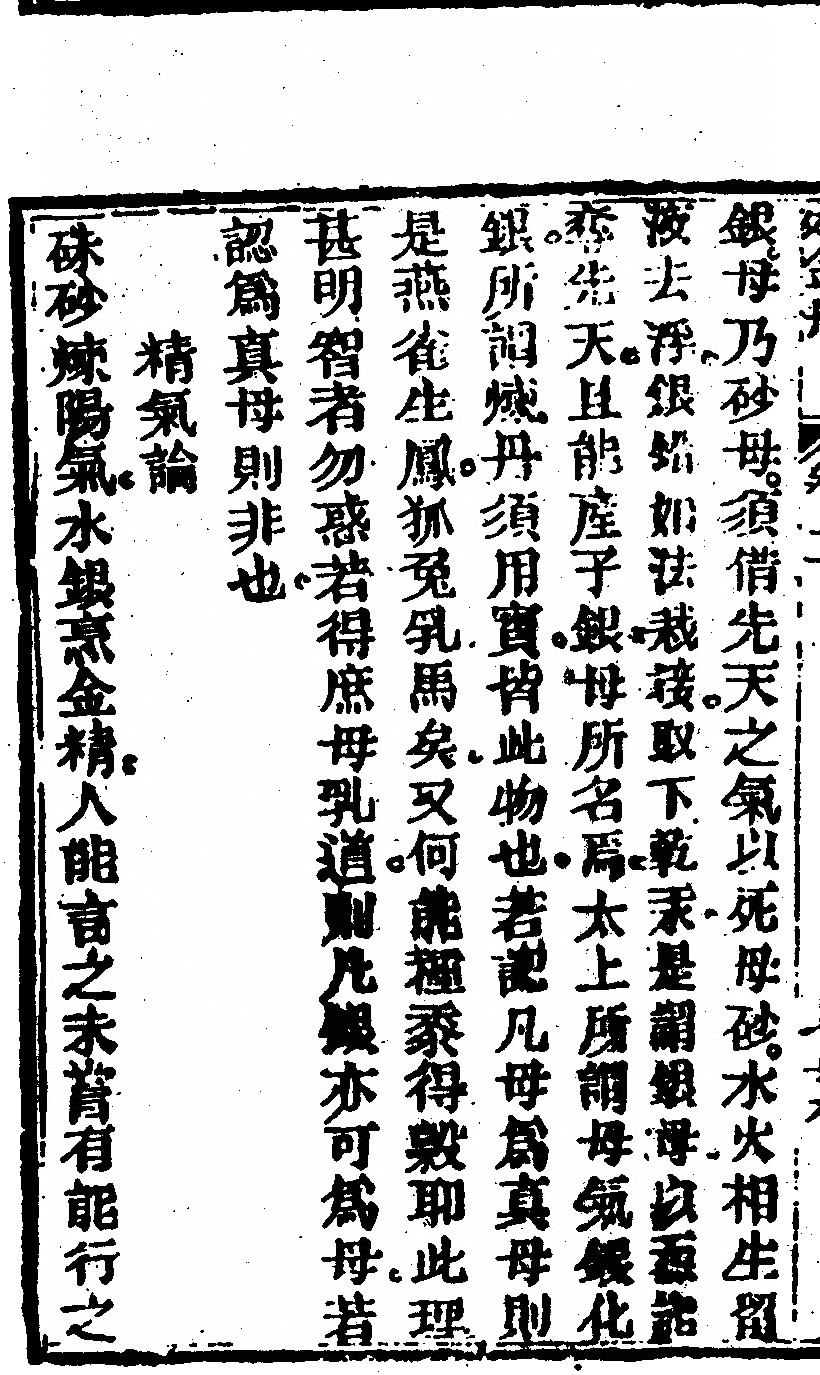 銀母乃砂母須借先天之氣以死母砂水火相生留
液去浮銀鉛如法栽接取下乾汞是謂銀母以面能
奪先天且能産子銀母所名焉太上所謂母氣銀化
銀所謂燒丹須用寶皆此物也若認凡母爲真母則
是燕雀生鳳狐兔乳馬矣又何能種黍得榖耶此理
甚明智者勿惑若得庶母乳道則凡銀亦可爲母若
認爲真母則非也
精氣論
硃砂煉陽氣水銀烹金精人能言之未嘗有能行之